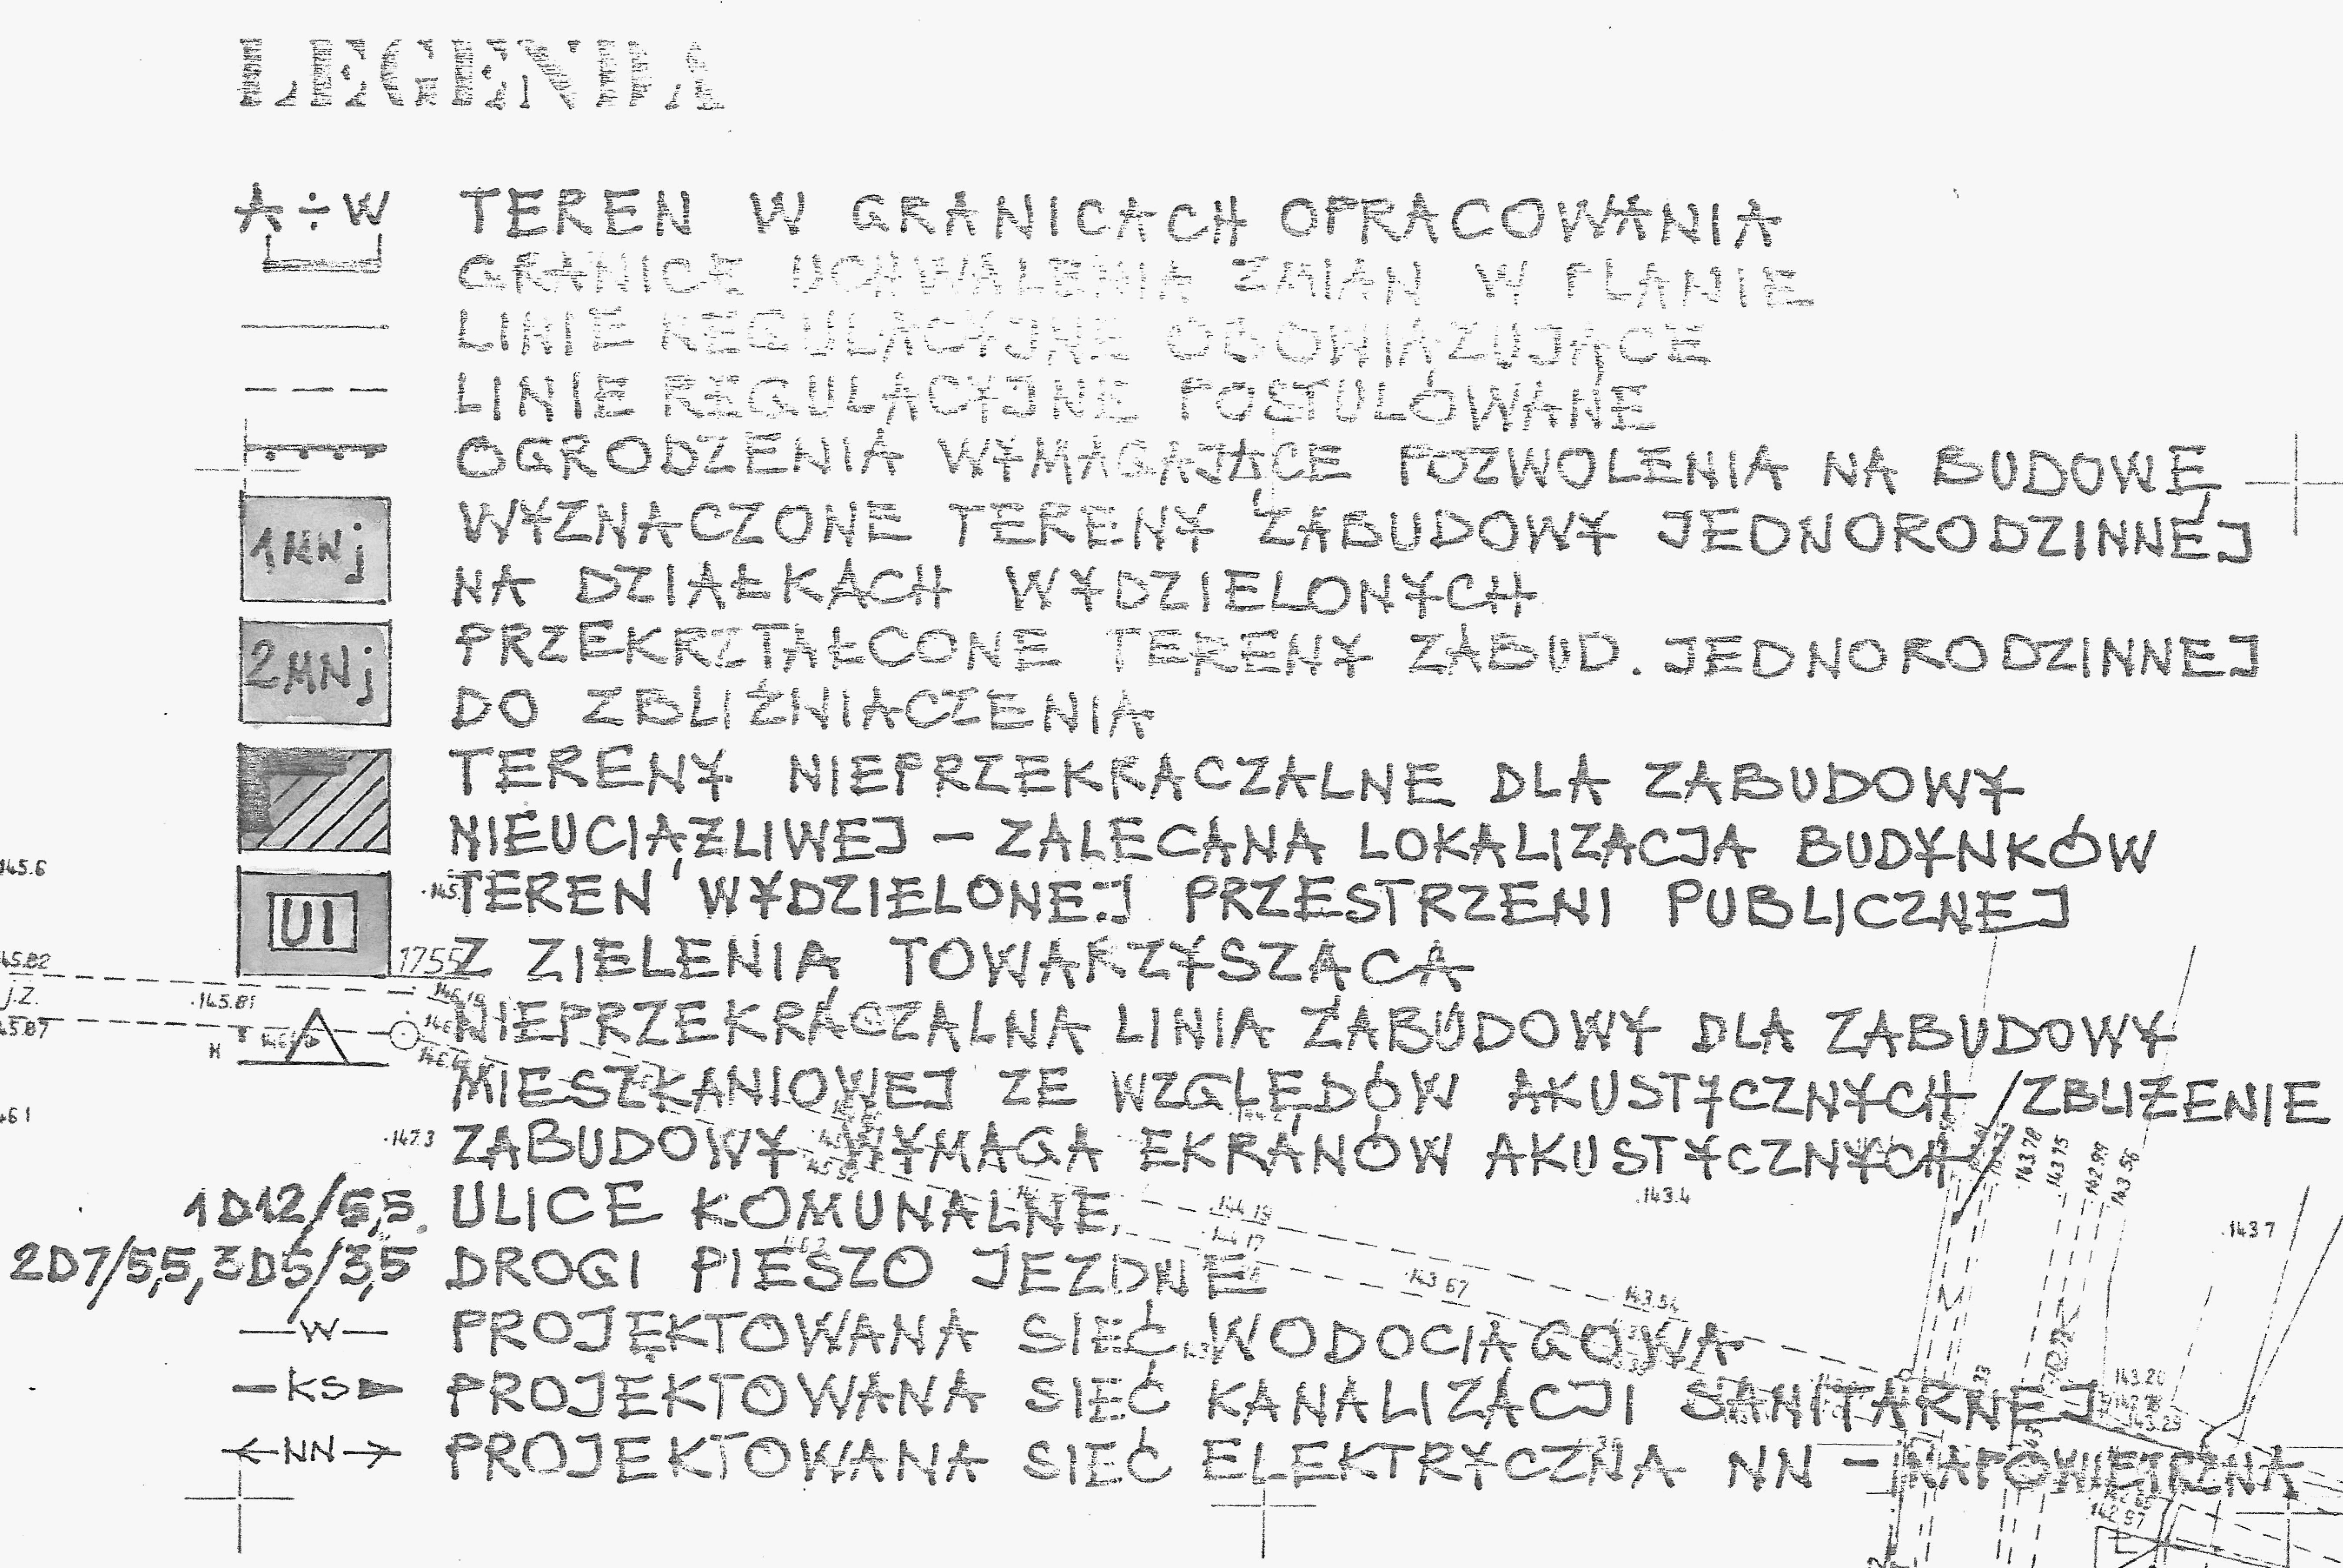 LEGENDA
A÷W TEREN W GRANICACH OPRACOWANIA
GRANICE UCHWALENIA ZMIAN W PLANIE
LINIE REGULACYJNE OBOWIĄZUJĄCE
LINIE REGULACYJNE POSTULOWANE
OGRODZENIA WYMAGAJĄCE POZWOLENIA NA BUDOWĘ
1MNj WYZNACZONE TERENY ZABUDOWY JEDNORODZINNEJ
NA DZIAŁKACH WYDZIELONYCH
2MNj PRZEKRZTAŁCONE TERENY ZABUD. JEDNORODZINNEJ
DO ZBLIŹNIACZENIA
TERENY NIEPRZEKRACZALNE DLA ZABUDOWY
NIEUCIĄZLIWEJ – ZALECANA LOKALIZACJA BUDYNKÓW
145.6
UI TEREN WYDZIELONEJ PRZESTRZENI PUBLICZNEJ
145.82 1755 Z ZIELENIĄ TOWARZYSZĄCĄ
j.Z. .145.81
45.87 NIEPRZEKRACZALNA LINIA ZABUDOWY DLA ZABUDOWY
MIESZKANIOWEJ ZE WZGLĘDÓW AKUSTYCZNYCH /ZBLIŻENIE
461
.147.3 ZABUDOWY WYMAGA EKRANÓW AKUSTYCZNYCH/
143.78 143.75 142.99 143.56
1D12/5,5. ULICE KOMUNALNE
144.19 .143.4 .1437
2D7/5,5, 3D5/3,5 DROGI PIESZO JEZDNE
144.17 .143 67 143.54
—W— PROJEKTOWANA SIEĆ WODOCIĄGOWA
—KS PROJEKTOWANA SIEĆ KANALIZACJI SANITARNEJ
143.20
←NN→ PROJEKTOWANA SIEĆ ELEKTRYCZNA NN – NAPOWIETRZNA